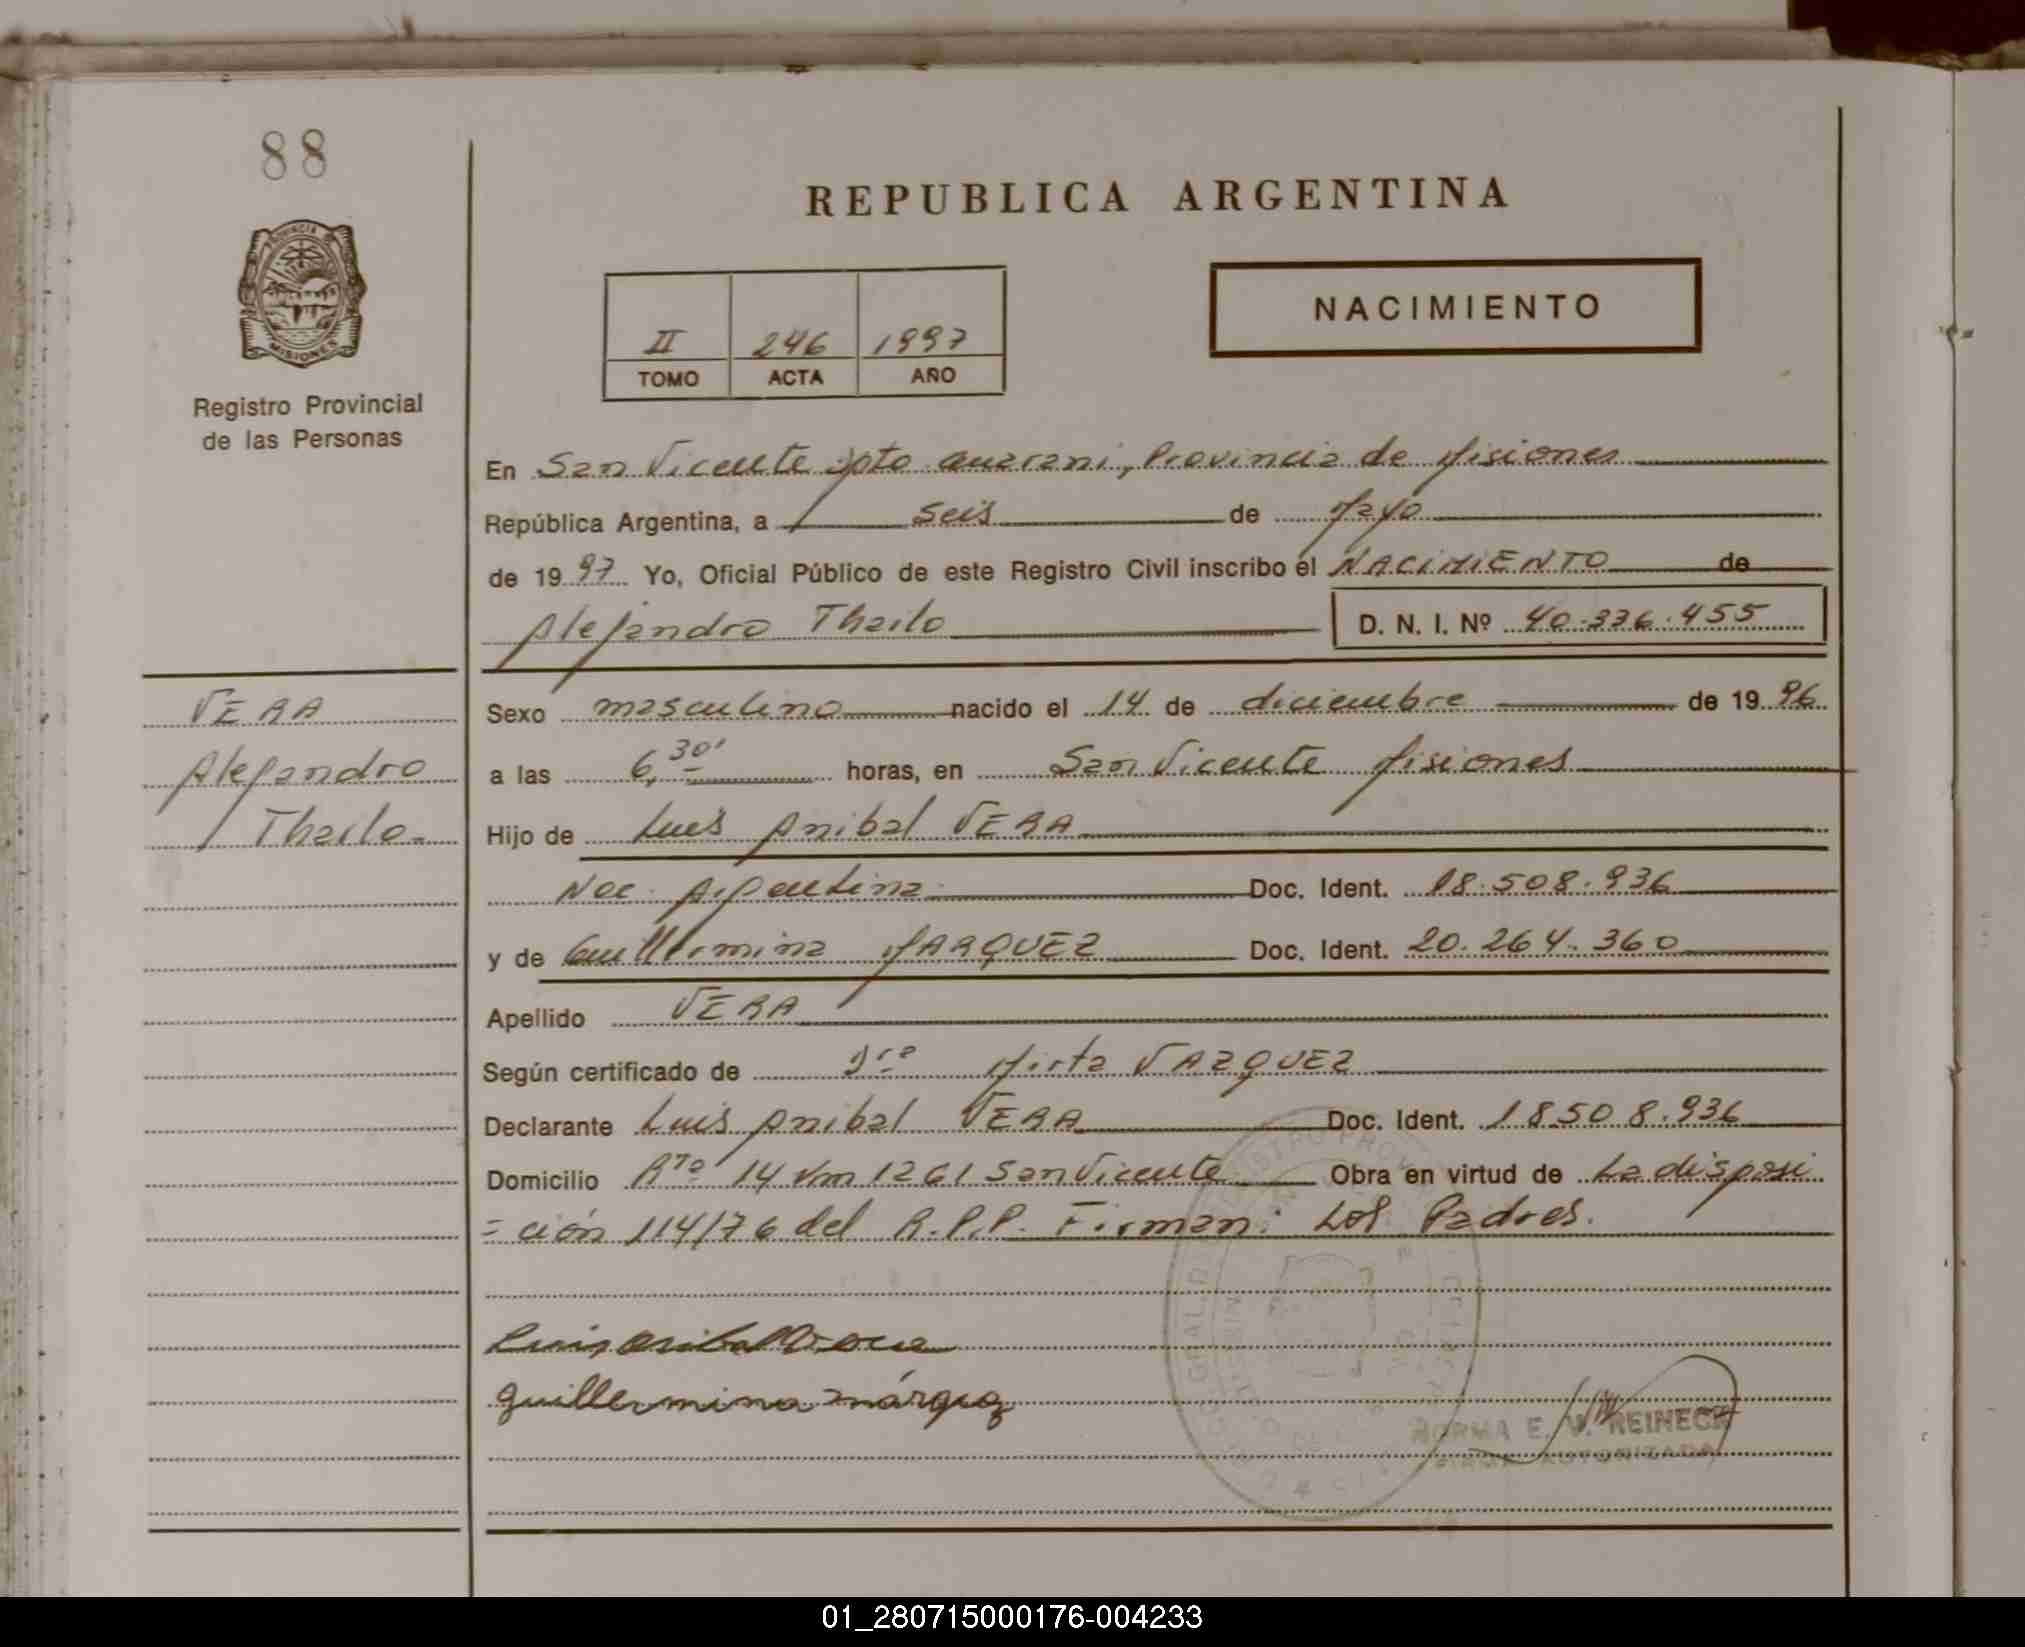 88
REPUBLICA ARGENTINA
PROVINCIA DE
MISIONES
Registro Provincial
de las Personas
II 246 1997
TOMO ACTA AÑO
NACIMIENTO
En San Vicente Dpto Guarani, Provincia de Misiones
República Argentina, a seis de Mayo
de 1997 Yo, Oficial Público de este Registro Civil inscribo el NACIMIENTO de
Alejandro Thailo D. N. I. Nº 40.336.455
VERA
Alejandro
Thailo
Sexo masculino nacido el 14 de diciembre de 1996
a las 6,30' horas, en San Vicente Misiones
Hijo de Luis Anibal VERA
Nac. Argentina Doc. Ident. 18.508.936
y de Guillermina MARQUEZ Doc. Ident. 20.264.360
Apellido VERA
Según certificado de Dra Mirta VAZQUEZ
Declarante Luis Anibal VERA Doc. Ident. 18508.936
Domicilio Rta 14 Km 1261 San Vicente Obra en virtud de La disposi
=ción 114/76 del R.P.P. Firman: Los Padres.
Luis Anibal Vera
guillermina márqez
NORMA E. V. REINECK
FIRMA AUTORIZADA
01_280715000176-004233